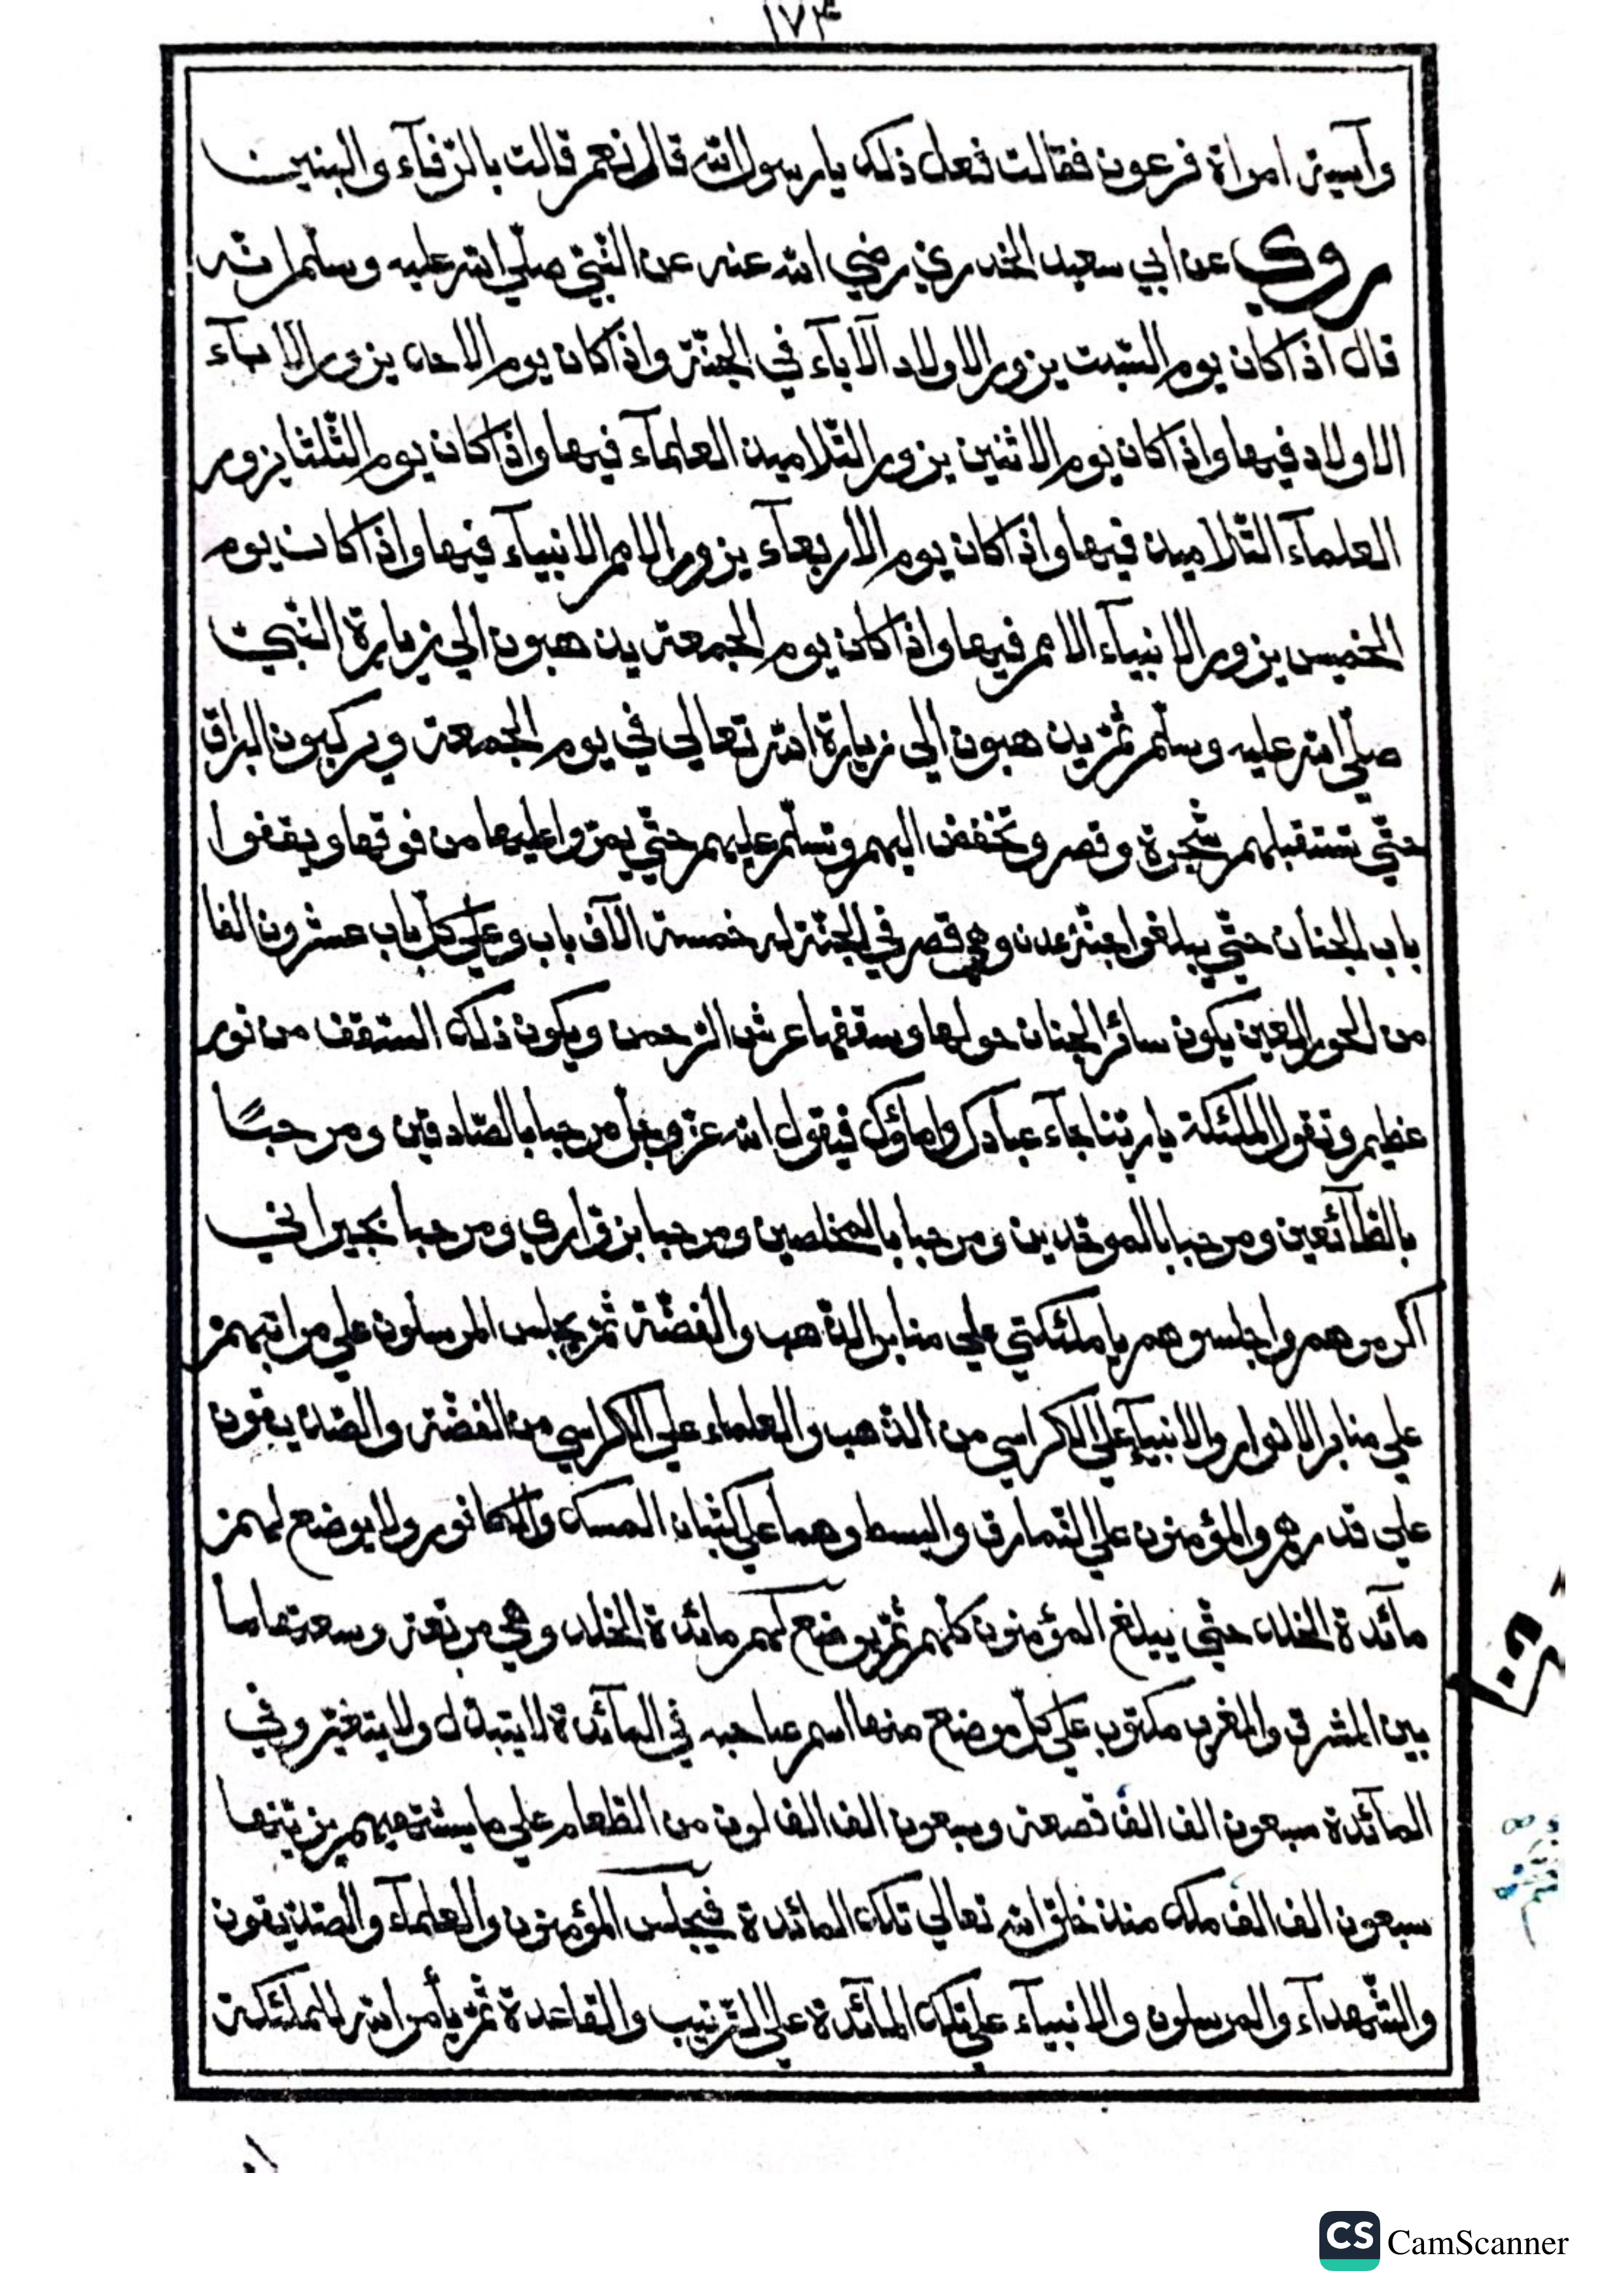 ١٧٣
وآسية امراة فرعون فقالت فعل ذلك يارسول الله قال نعم قالت بالرّفآء والبنين
روي عن ابي سعيد الخدري رضي الله عنه عن النّبيّ صلّي الله عليه وسلّم انّه
قال اذا كان يوم السّبت يزور الاولاد الآبآء في الجنّة واذا كان يوم الاحد يزور الابآء
الاولاد فيها واذا كان يوم الاثنين يزور التّلاميذ العلمآء فيها واذا كان يوم الثّلثا يزور
العلمآء التّلاميذ فيها واذا كان يوم الاربعآء يزور الامم الانبيآء فيها واذا كان يوم
الخميس يزور الانبيآء الامم فيها واذا كان يوم الجمعة يذهبون الي زيارة النّبيّ
صلّي الله عليه وسلّم ثمّ يذهبون الي زيارة الله تعالي في يوم الجمعة ويركبون البراق
حتّي تستقبلهم شجرة وقصر وتخفض اليهم وتسلّم عليهم حتّي يمرّوا عليها من فوقها ويقفوا
باب الجنان حتّي يبلغوا جنّة عدن وهي قصر في الجنّة له خمسة الآف باب وعلي كلّ باب عشرون الفا
من الحور العين يكون سائر الجنان حولها وسقفها عرش الرّحمن ويكون ذلك السّقف من نور
عظيم وتقول الملئكة ياربّنا جآء عبادك واماؤك فيقول الله عزّ وجلّ مرحبا بالصّادقين ومرحبًا
بالطّآئعين ومرحبا بالموحّدين ومرحبا بالمخلصين ومرحبا بزوّاري ومرحبا بجيراني
اكرموهم واجلسوهم ياملئكتي علي منابر الذّهب والفضّة ثمّ يجلس المرسلون علي مراتبهم
علي منابر الانوار والانبيآء علي الكراسي من الذّهب والعلماء علي الكراسي من الفضّة والصّدّيقون
علي قدرهم والمؤمنون علي النّمارق والبسط وهما علي كثبان المسك والكافور ولا يوضع لهم
مآئدة الخلد حتّي يبلغ المؤمنون كلّهم ثمّ يوضع لهم مائدة الخلد وهي مرتعة وسعتها ما
بين المشرق والمغرب مكتوب علي كلّ موضع منها اسم صاحبه في المآئدة لا يتبدّل ولا يتغيّر وفي
المآئدة سبعون الف الف قصعة وسبعون الف الف لون من الطّعام علي ما يشتهيهم يزيّنها
سبعون الف الف ملك منذ خلق الله تعالي تلك المائدة فيجلس المؤمنون والعلمآء والصّدّيقون
والشّهدآء والمرسلون والانبيآء علي تلك المآئدة علي التّرتيب والقاعدة ثمّ يأمر الله الملئكة
CS CamScanner